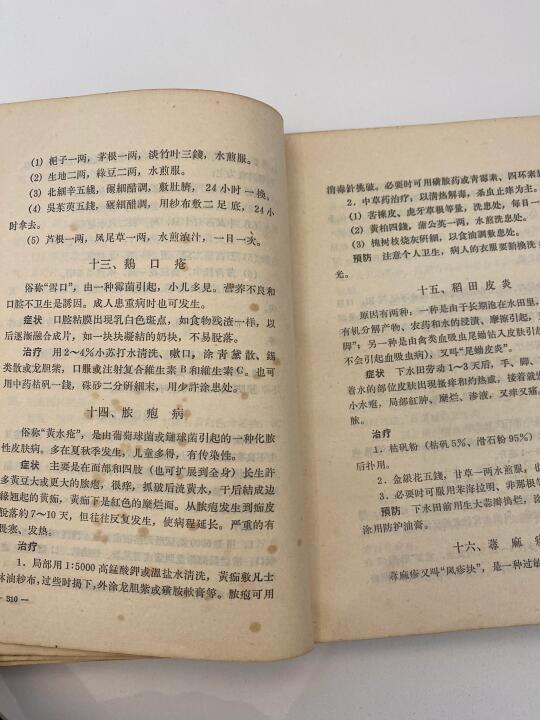 (1) 梔子一两，茅根一两，淡竹叶三錢，水煎服。
(2) 生地二两，綠豆二两，水煎服。
(3) 北細辛五錢，碾細醋調，敷肚臍，24小时一换。
(4) 吳茱萸五錢，碾細醋調，用纱布敷二足底，24小
时拿去。
(5) 芦根一两，凤尾草一两，水煎浓汁，一日一次。
十三、鵝口疮
俗称“雪口”，由一种霉菌引起，小儿多見。营养不良和
口腔不卫生是誘因。成人患重病时也可发生。
症状 口腔粘膜出現乳白色斑点，如食物残渣一样，以
后逐漸融合成片，如一块块凝結的奶块，不易脱落。
治疗 用2～4%小苏打水清洗、嗽口，涂青黛散、錫
类散或龙胆紫，口服或注射复合維生素B和維生素C。也可
用中药枯矾一錢，硃砂二分研細末，用少許涂患处。
十四、脓疱病
俗称“黄水疮”，是由葡萄球菌或鏈球菌引起的一种化脓
性皮肤病，多在夏秋季发生，儿童多得，有传染性。
症状 主要是在面部和四肢（也可扩展到全身）长生許
多黄豆大或更大的脓疱，很痒，抓破后流黄水，干后結成边
緣翘起的黄痂，黄痂下是紅色的糜烂面。从脓疱发生到痂皮
脱落約7～10天，但往往反复发生，使病程延长。严重的有
畏寒、发热。
治疗
1．局部用1:5000高錳酸鉀或温盐水清洗，黄痂敷凡士
林油纱布，过些时揭下，外涂龙胆紫或磺胺軟膏等。脓疱可用
— 310 —
消毒針挑破。必要时可用磺胺药或青霉素、四环素
2．中草药治疗，以清热解毒，杀虫止痒为主。
(1) 苦楝皮、虎牙草根等量，水煎洗患处，每日一
(2) 黄柏四錢，蒲公英一两，水煎洗患处。
(3) 槐树枝烧灰研細，以食油調敷患处。
預防 注意个人卫生，病人的衣服要勤换洗
光。
十五、稻田皮炎
原因有两种，一种是由于长期泡在水田里，
有机分解产物、农药和水的浸渍、摩擦引起，
脚”；另一种是由禽类血吸虫尾蚴钻入皮肤引起
不会引起血吸虫病)，又叫“尾蚴皮炎”。
症状 下水田劳动1～3天后，手、脚、
着水的部位皮肤出現搔痒和灼热感，接着就发
小水疱，局部紅肿、糜烂、渗液，又痒又痛，
脓。
治疗
1．枯矾粉（枯矾5%、滑石粉95%）
后扑用。
2．金銀花五錢，甘草一两水煎服，也
3．必要时可服用苯海拉明、非那根等
預防 下水田前用生大蒜瓣捣烂，
涂用防护油膏。
十六、蕁麻疹
蕁麻疹又叫“风疹块”，是一种过敏